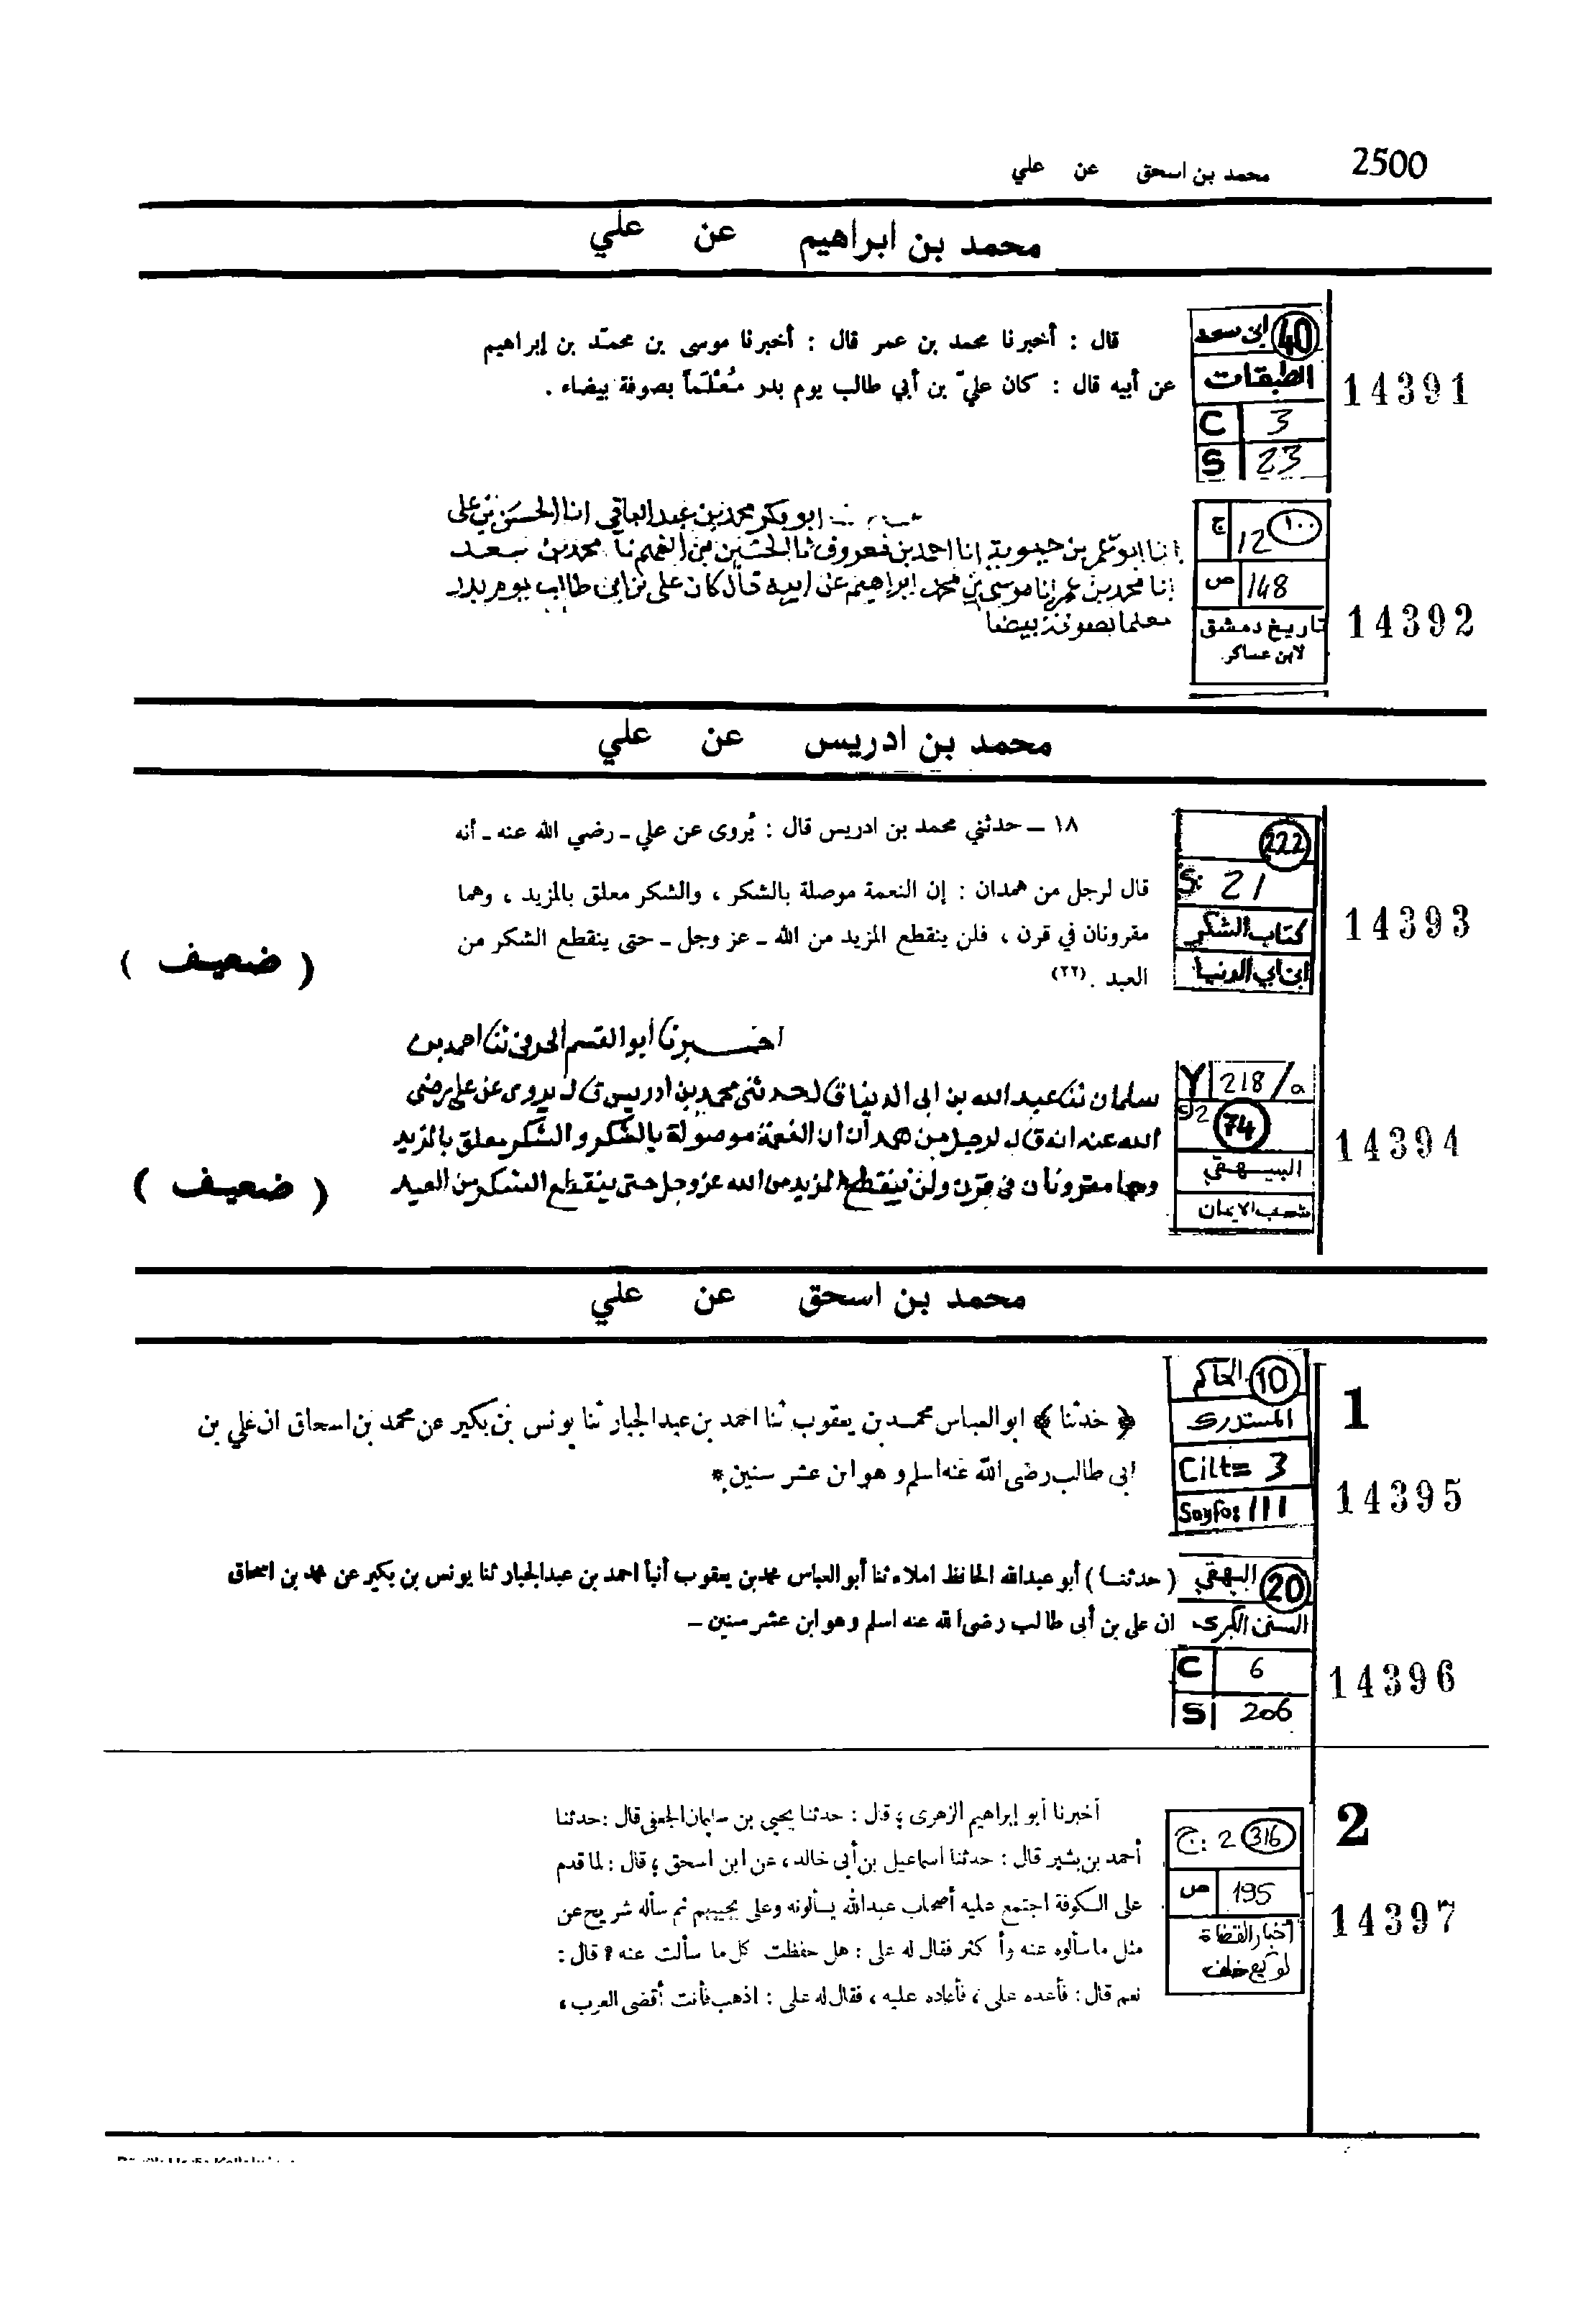 2500 محمد بن اسحق عن علي
محمد بن ابراهيم عن علي
14391
40 ابن سعد
الطبقات
C 3
S 23
قال : أخبرنا محمد بن عمر قال : أخبرنا موسى بن محمّد بن إبراهيم
عن أبيه قال : كان عليّ بن أبي طالب يوم بدر مُعْلَماً بصوفة بيضاء .
14392
١٠٠ ج 12
ص 148
تاريخ دمشق
لابن عساكر
ابو بكر محمد بن عبد الباقي انا الحسن بن علي
انا ابو عمر بن حيوية انا احمد بن معروف نا الحسين بن الفهم نا محمد بن سعد
انا محمد بن عمر انا موسى بن محمد ابراهيم عن ابيه قال كان علي بن ابي طالب يوم بدر
معلما بصوفة بيضا
محمد بن ادريس عن علي
14393
222
S: 21
كتاب الشكر
ابن ابي الدنيا
١٨ ــ حدثني محمد بن ادريس قال : يُروى عن علي ـ رضي الله عنه ـ أنه
قال لرجل من همدان : إن النعمة موصلة بالشكر ، والشكر معلق بالمزيد ، وهما
مقرونان في قرن ، فلن ينقطع المزيد من الله ـ عز وجل ـ حتى ينقطع الشكر من
العبد . (٢٢)
( ضعيف )
14394
Y 218/a
74
البيهقي
شعب الايمان
اخبرنا ابو القسم الحرفي ثنا احمد بن
سلمان ثنا عبد الله بن ابي الدنيا قال حدثني محمد بن ادريس قال يروى عن علي رضي
الله عنه انه قال لرجل من همدان ان النعمة موصولة بالشكر والشكر معلق بالمزيد
وهما مقرونان في قرن ولن ينقطع المزيد من الله عز وجل حتى ينقطع الشكر من العبد
( ضعيف )
محمد بن اسحق عن علي
1
14395
10 الحاكم
المستدرك
Cilt= 3
Sayfa: 111
﴿ حدثنا ﴾ ابو العباس محمد بن يعقوب ثنا احمد بن عبد الجبار ثنا يونس بن بكير عن محمد بن اسحاق ان علي بن
ابي طالب رضى الله عنه اسلم وهو ابن عشر سنين *
14396
20 البيهقي
السنن الكبرى
C 6
S 206
( حدثنا ) أبو عبدالله الحافظ املاء ثنا أبو العباس محمد بن يعقوب أنبأ احمد بن عبدالجبار ثنا يونس بن بكير عن محمد بن اسحاق
ان على بن أبى طالب رضى الله عنه اسلم وهو ابن عشر سنين ــ
2
14397
316 ج: 2
ص 195
اخبار القضاة
لوكيع خلف
أخبرنا أبو إبراهيم الزهرى ؛ قال : حدثنا يحيى بن سليمان الجعفى قال : حدثنا
أحمد بن بشير قال : حدثنا اسماعيل بن أبى خالد ، عن ابن اسحق ؛ قال : لما قدم
على الكوفة اجتمع عليه أصحاب عبدالله يسألونه وعلى يجيبهم ثم سأله شريح عن
مثل ما سألوه عنه وأكثر فقال له على : هل حفظت كل ما سألت عنه ؟ قال :
نعم قال : فأعده على ، فأعاده عليه ، فقال له على : اذهب فأنت أقضى العرب ،